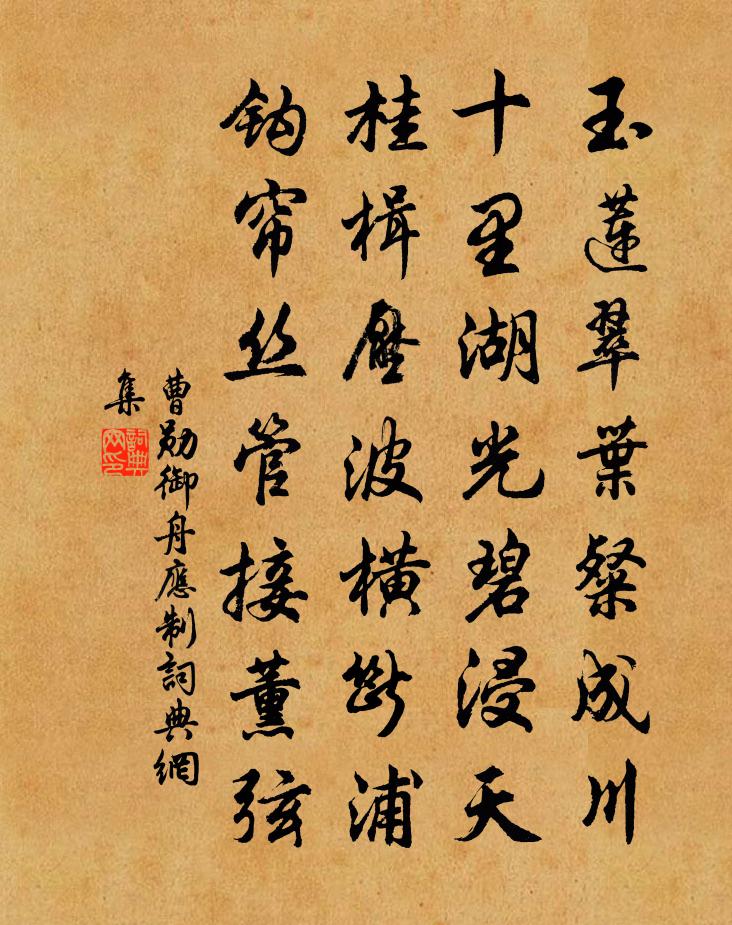 玉蓮翠葉粲成川
十里湖光碧浸天
桂楫壓波橫斷浦
鈎帘丝管接薰弦
曹勛御舟應制詞典網
集
詞典網印